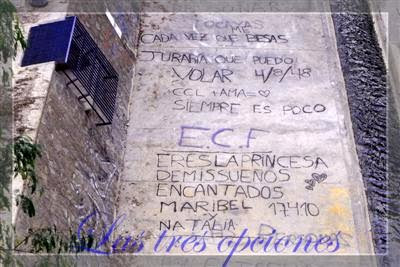 ME
CADA VEZ QUE BESAS
JURARIA QUE PUEDO
VOLAR 4/8/18
CCL + AMA = ♡
SIEMPRE ES POCO
E.C.F
ERES LA PRINCESA
DE MIS SUEÑOS
ENCANTADOS
MARIBEL 17410
Y
NATALIA
Las tres opciones